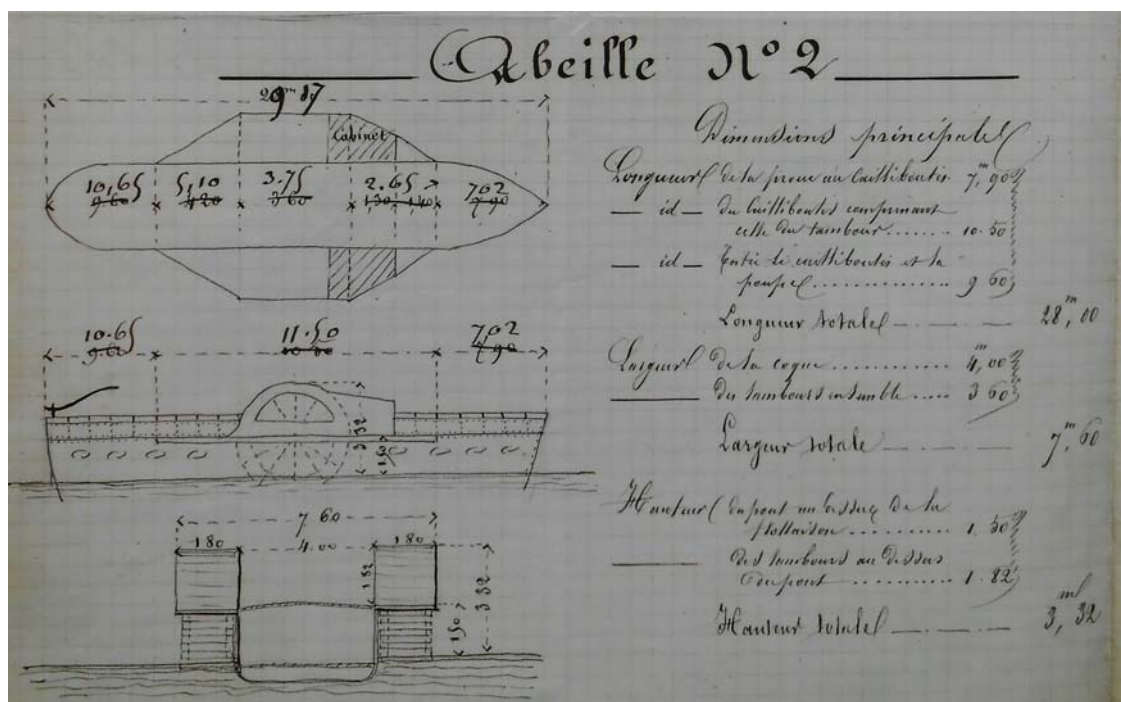 Abeille N° 2
29m 17
Cabinet
10,65 5,10 3.75 2.65 7,02
9.60 4.20 3.60 1,50 1,40 7.90
10.65 11.50 7,02
9.60 10.50 7.90
3.32
1,50
7.60
1.80 4.00 1.80
1.82
3.32
1.50
Dimensions principales
Longueur de la proue au Cailliboutis 7,m90
— id — du Cailliboutis comprenant
celle du tambour....... 10.50
— id — Entre le cailliboutis et la
poupe.............. 9 60
Longueur totale 28,m00
Largeur de la coque............ 4,m00
des tambours ensemble..... 3 60
Largeur totale 7,m60
Hauteur du pont au dessus de la
flottaison.......... 1.50
des tambours au dessus
du pont.......... 1.82
Hauteur totale 3,ml 32